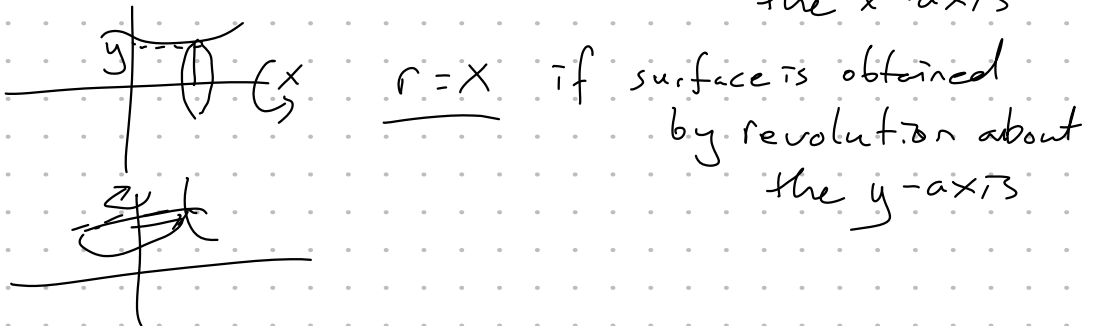 the x-axis
y
x
r = x if surface is obtained
by revolution about
the y-axis